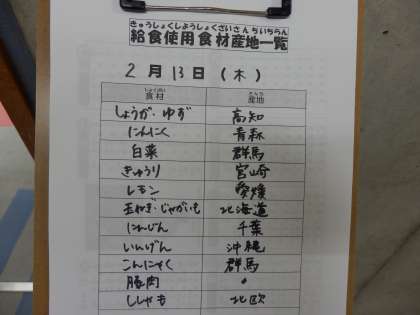 きゅうしょくしようしょくざいさんちいちらん
給食使用食材産地一覧
2月13日(木)
しょくざい さんち
食材 産地
しょうが・ゆず 高知
にんにく 青森
白菜 群馬
きゅうり 宮崎
レモン 愛媛
玉ねぎ・じゃがいも 北海道
にんじん 千葉
いんげん 沖縄
こんにゃく 群馬
豚肉 〃
ししゃも 北欧